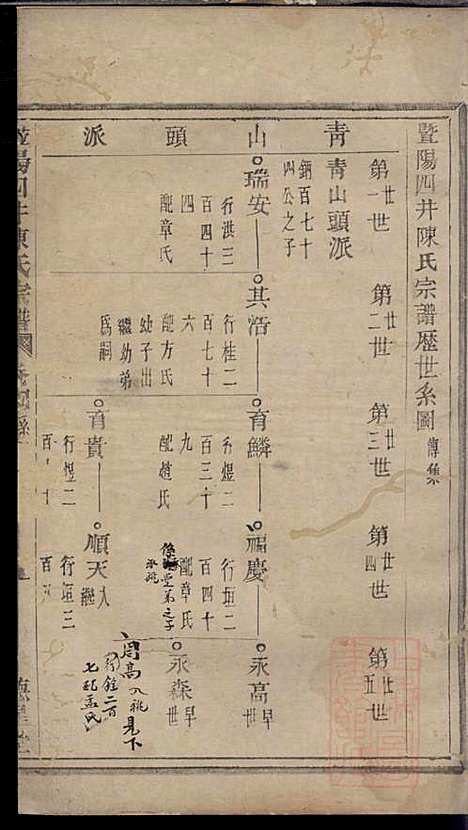 暨陽四井陳氏宗譜歷世系圖 傳集
第廿一世
第廿二世
第廿三世
第廿四世
第廿五世
青山頭派
青山頭派
鈉百七十
四公之子
瑞安
行洪三
百四十
四
配章氏
其浩
行桂二
百七十
六
配方氏
幼子出
繼幼弟
爲嗣
育鱗
行煜二
百三十
九
配趙氏
福慶
行垣二
百四十
配章氏
堂弟之子
承祧
永高
早世
永森
早世
育貴
行煜二
順天
入繼
行垣三
周高 入祧
見下
行鋡二百
七配孟氏
暨陽四井陳氏宗譜